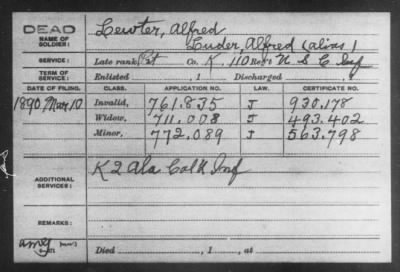 DEAD
NAME OF SOLDIER: Lewter, Alfred
Luder, Alfred (alias)
SERVICE: Late rank, Pvt Co. K, 110 Reg't U S C Inf
TERM OF SERVICE: Enlisted , 1 Discharged , 1
DATE OF FILING. CLASS. APPLICATION NO. LAW. CERTIFICATE NO.
1890 Mar 10 Invalid, 761.835 J 930.178
Widow, 711.008 J 493.402
Minor, 772.089 J 563.798
ADDITIONAL SERVICES: K 2 Ala Col'd Inf
REMARKS:
Died , 1 , at